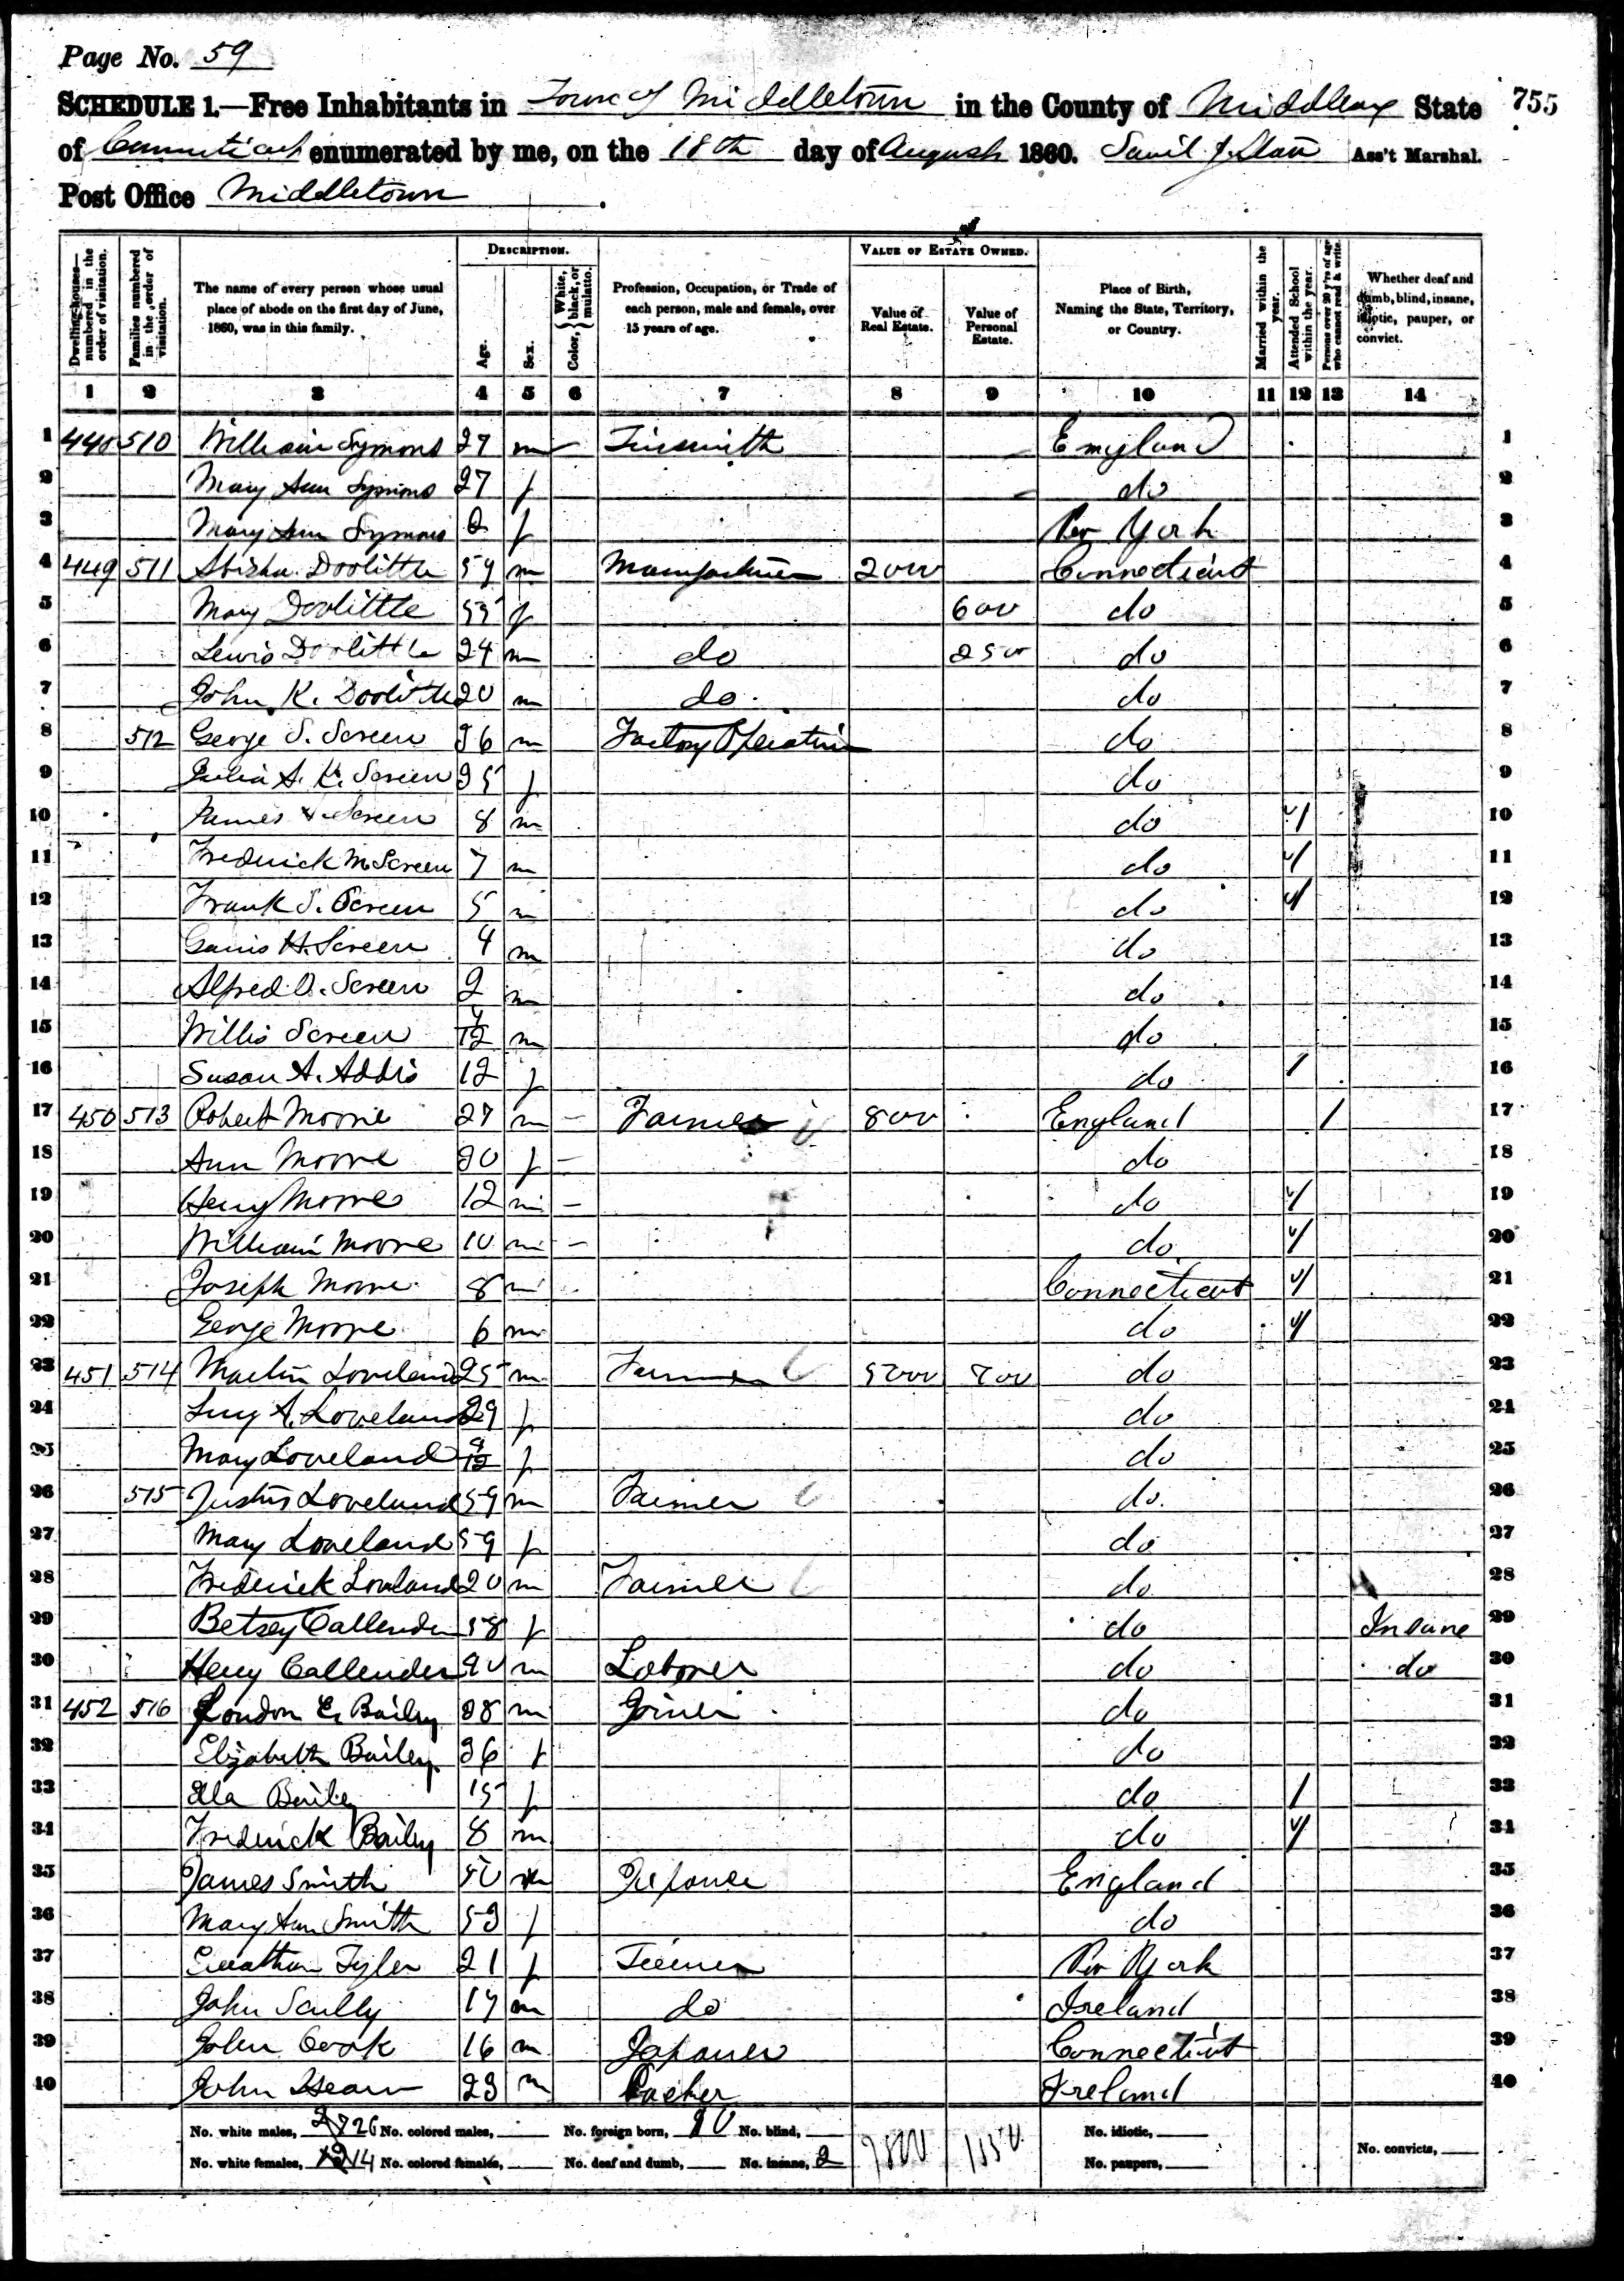 Page No. 59
SCHEDULE 1.—Free Inhabitants in Town of Middletown in the County of Middlesex State 755
of Connecticut enumerated by me, on the 18th day of August 1860. Ass't Marshal.
Post Office Middletown
Dwelling-houses—numbered in the order of visitation.
Families numbered in the order of visitation.
The name of every person whose usual place of abode on the first day of June, 1860, was in this family.
DESCRIPTION.
Age.
Sex.
Color, White, black, or mulatto.
Profession, Occupation, or Trade of each person, male and female, over 15 years of age.
VALUE OF ESTATE OWNED.
Value of Real Estate.
Value of Personal Estate.
Place of Birth, Naming the State, Territory, or Country.
Married within the year.
Attended School within the year.
Persons over 20 y'rs of age who cannot read & write.
Whether deaf and dumb, blind, insane, idiotic, pauper, or convict.
1 2 3 4 5 6 7 8 9 10 11 12 13 14
1 448 510 William Symons 27 m Tinsmith England 1
2 Mary Ann Symons 27 f do 2
3 Mary Ann Symons 2 f New York 3
4 449 511 Abisha Doolittle 59 m Manufacturer 2000 Connecticut 4
5 Mary Doolittle 55 f 600 do 5
6 Lewis Doolittle 24 m do 250 do 6
7 John K. Doolittle 20 m do do 7
8 512 George S. Screen 36 m Factory Operative do 8
9 Julia A. K. Screen 35 f do 9
10 James Screen 8 m do 1 10
11 Frederick M Screen 7 m do 1 11
12 Frank S. Screen 5 m do 1 12
13 H. Screen 4 m do 13
14 Alfred O. Screen 2 m do 14
15 Willis Screen /12 m do 15
16 Susan A. Addis 12 f do 1 16
17 450 513 Robert Moore m Farmer 800 England 1 17
18 Ann Moore f do 18
19 Henry Moore 12 m do 1 19
20 William Moore 10 m do 1 20
21 Joseph Moore 8 m Connecticut 1 21
22 George Moore 6 m do 1 22
23 451 514 Martin Loveland 25 m Farmer 5000 do 23
24 Lucy A. Loveland 29 f do 24
25 Mary Loveland 9/12 f do 25
26 515 Justus Loveland 59 m Farmer do. 26
27 Mary Loveland 59 f do 27
28 Frederick Loveland 20 m Farmer do 28
29 Betsey Callender 58 f do Insane 29
30 Henry Callender m Laborer do do 30
31 452 516 E. Bailey 38 m Joiner do 31
32 Elizabeth Bailey 36 f do 32
33 Ella Bailey 15 f do 1 33
34 Frederick Bailey 8 m do 1 34
35 James Smith 50 m Japaner England 35
36 Mary Ann Smith 53 f do 36
37 Tyler 21 f New York 37
38 John Scully 17 m do Ireland 38
39 John Cook 16 m Japaner Connecticut 39
40 John Hearn 23 m Packer Ireland 40
No. white males, 26 No. colored males, No. foreign born, 10 No. blind, 7800 1350 No. idiotic,
No. white females, 14 No. colored females, No. deaf and dumb, No. insane, 2 No. paupers, No. convicts,